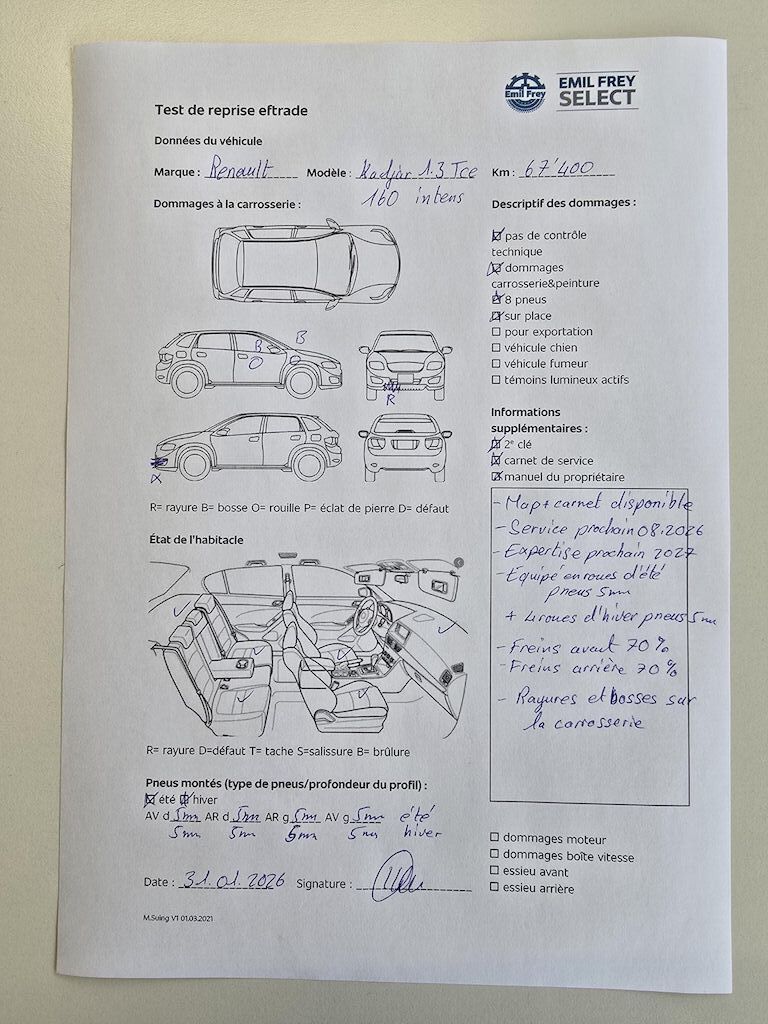 Emil Frey
EMIL FREY
SELECT
Test de reprise eftrade
Données du véhicule
Marque : Renault Modèle : Kadjar 1.3 Tce Km : 67'400
160 intens
Dommages à la carrosserie :
B B
R
X
R= rayure B= bosse O= rouille P= éclat de pierre D= défaut
État de l'habitacle
R= rayure D=défaut T= tache S=salissure B= brûlure
Pneus montés (type de pneus/profondeur du profil) :
été hiver
AV d 5mm AR d 5mm AR g 5mm AV g 5mm été
5mm 5mm 5mm 5mm hiver
Date : 31.01.2026 Signature :
M.Suing V1 01.03.2021
Descriptif des dommages :
pas de contrôle
technique
dommages
carrosserie&peinture
8 pneus
sur place
pour exportation
véhicule chien
véhicule fumeur
témoins lumineux actifs
Informations
supplémentaires :
2e clé
carnet de service
manuel du propriétaire
- Map + carnet disponible
- Service prochain 08.2026
- Expertise prochain 2027
- Equipé en roues d'été
pneus 5mm
+ 4 roues d'hiver pneus 5mm
- Freins avant 70%
- Freins arrière 70%
- Rayures et bosses sur
la carrosserie
dommages moteur
dommages boîte vitesse
essieu avant
essieu arrière